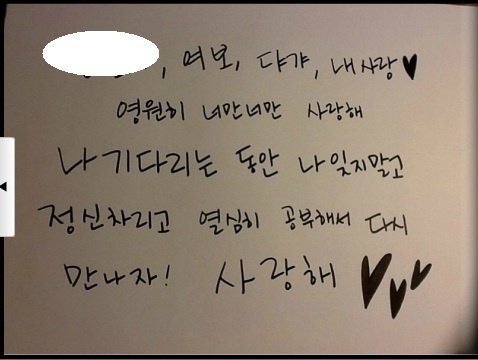 , 여보, 댜갸, 내사랑♥
영원히 너만너만 사랑해
나 기다리는 동안 나 잊지말고
정신차리고 열심히 공부해서 다시
만나자! 사랑해 ♥♥♥